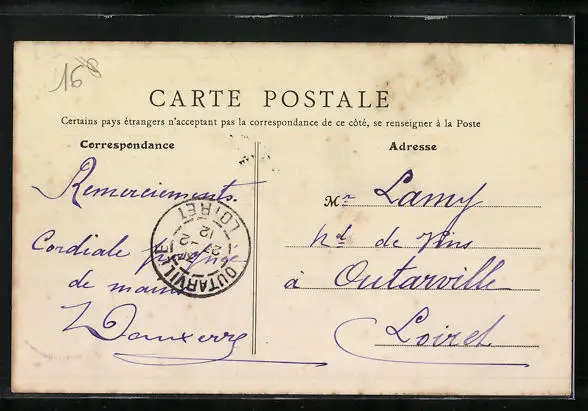 16
CARTE POSTALE
Certains pays étrangers n'acceptant pas la correspondance de ce côté, se renseigner à la Poste
Correspondance
Adresse
Remerciements.
Cordiale
de main
Mr Lamy
Nd de Vins
à Outarville
Loiret
OUTARVILLE
LOIRET